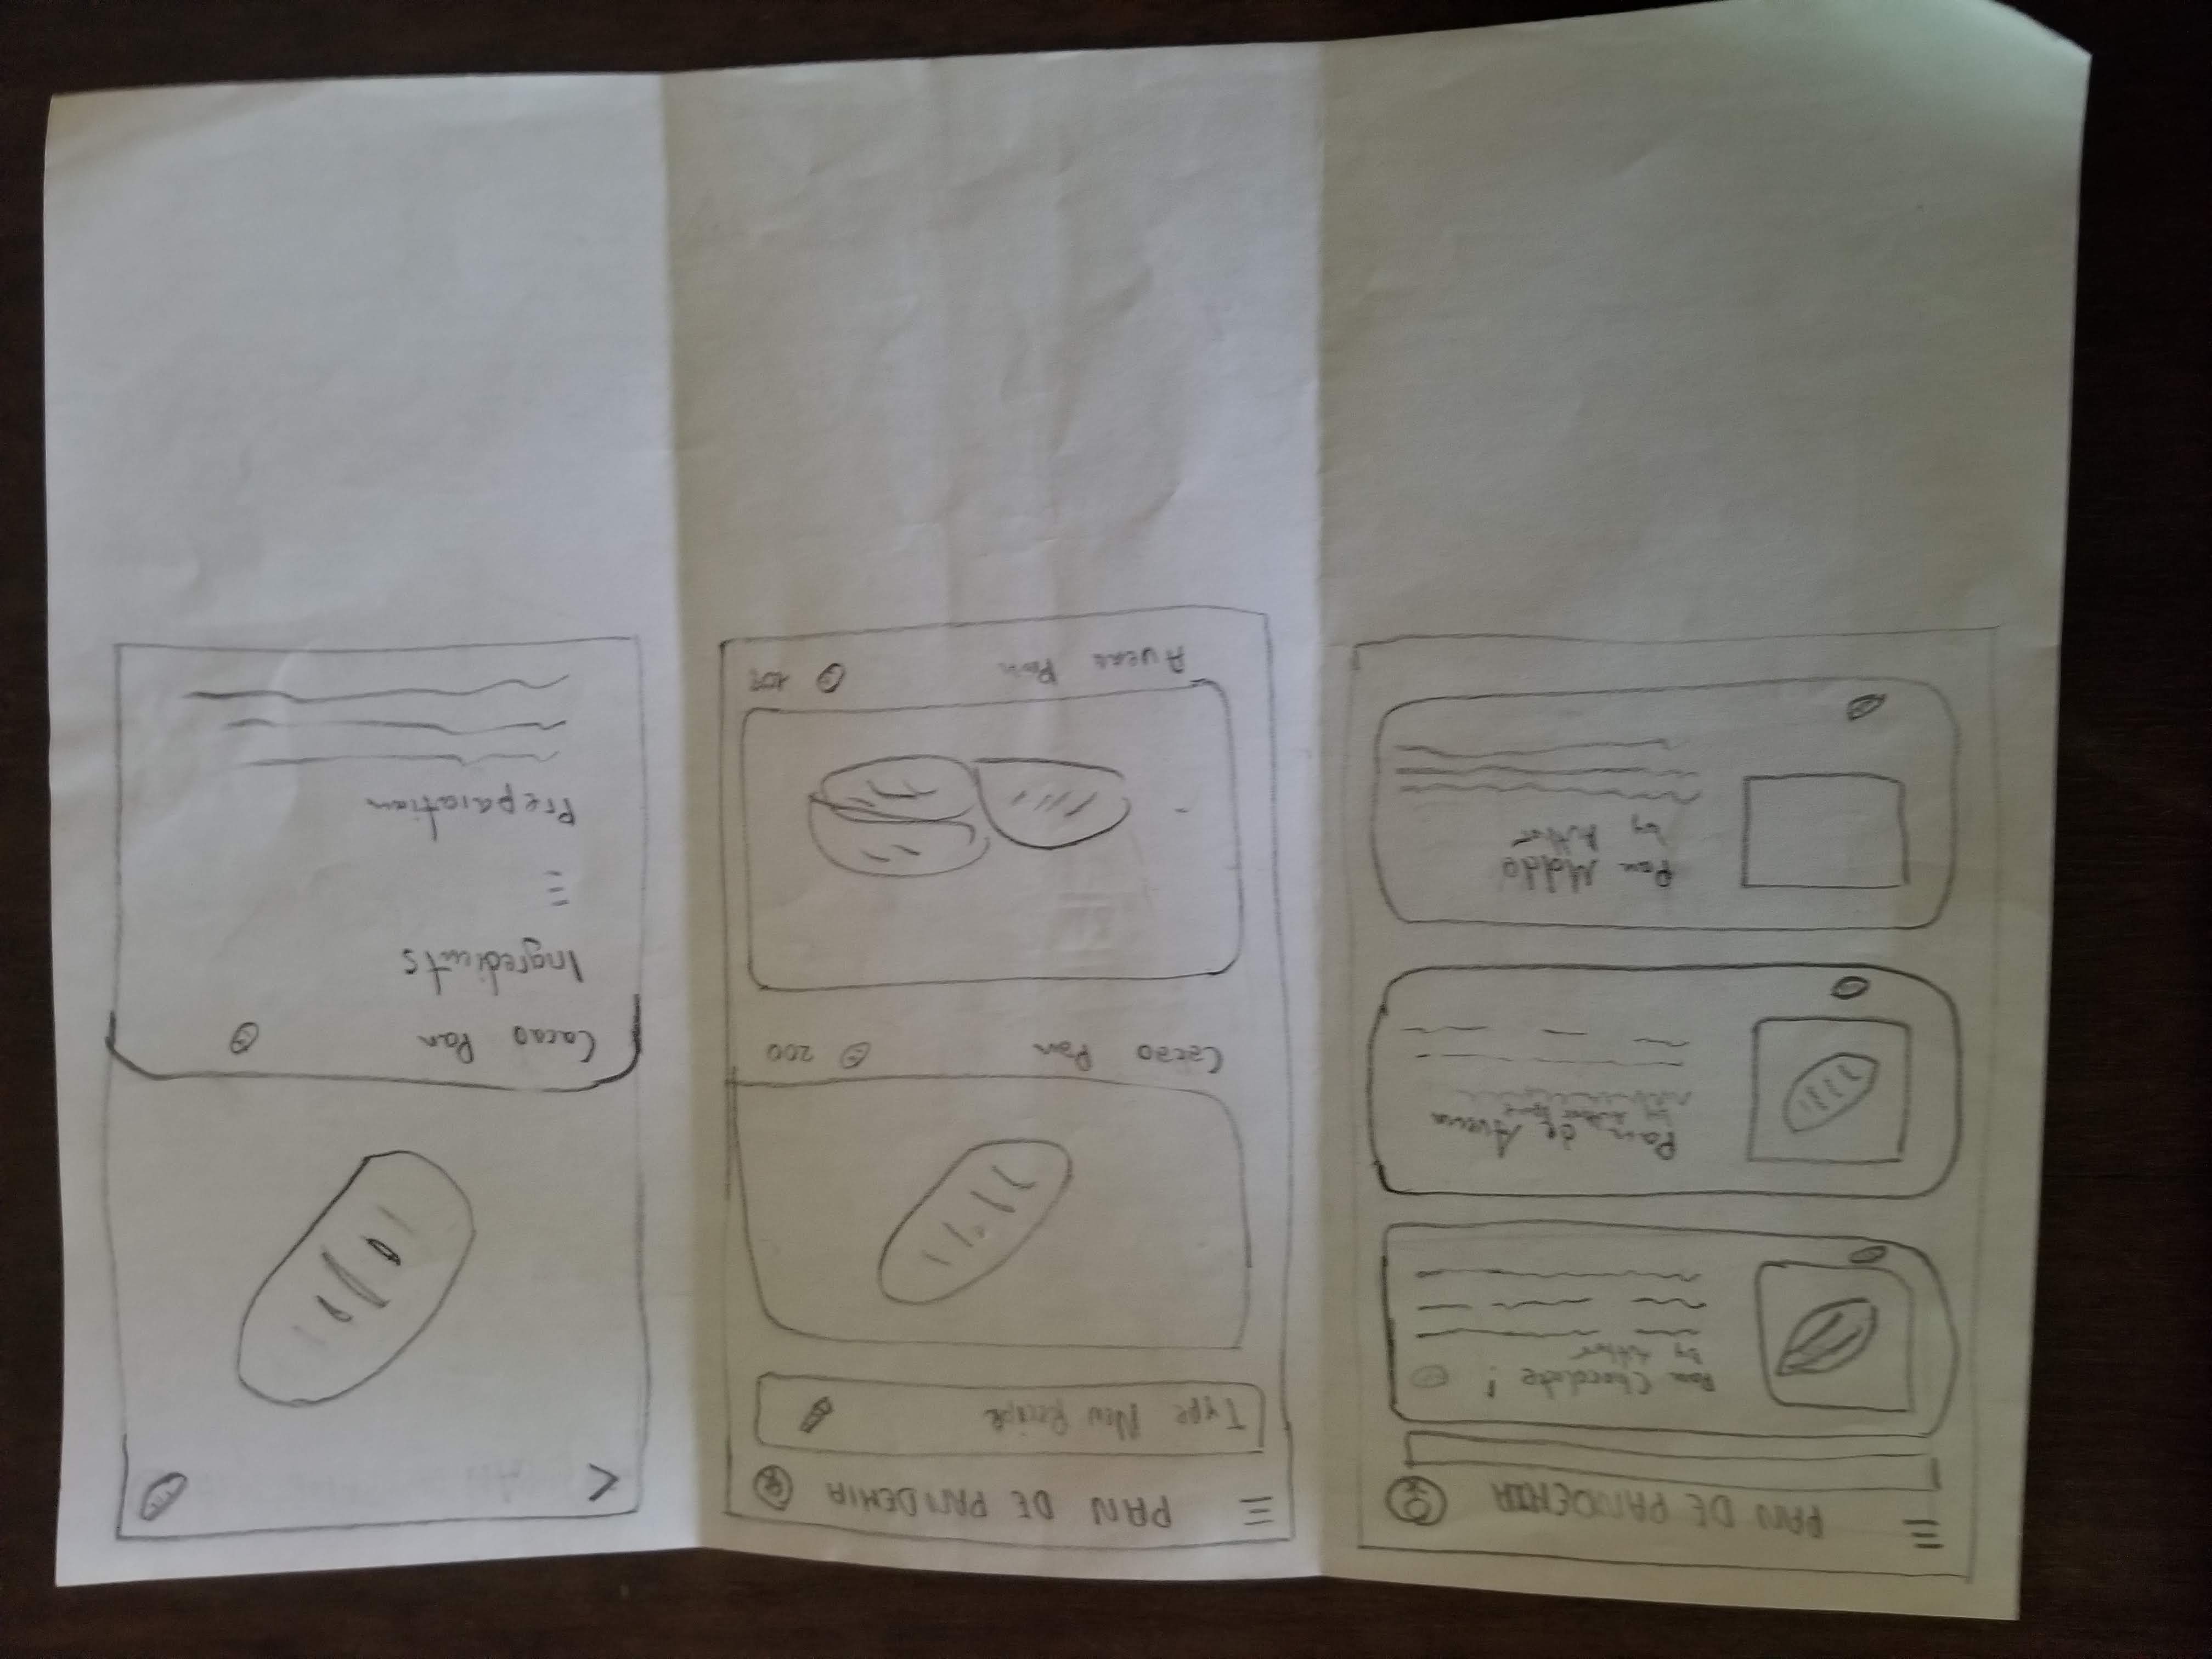 PAN DE PANDEMIA
Pan Chocolate!
by Author
Pan de Avena
Pan Molde
by Author
PAN DE PANDEMIA
Type New Recipe
Cacao Pan 200
Avena Pan
Cacao Pan
Ingredients
Preparation